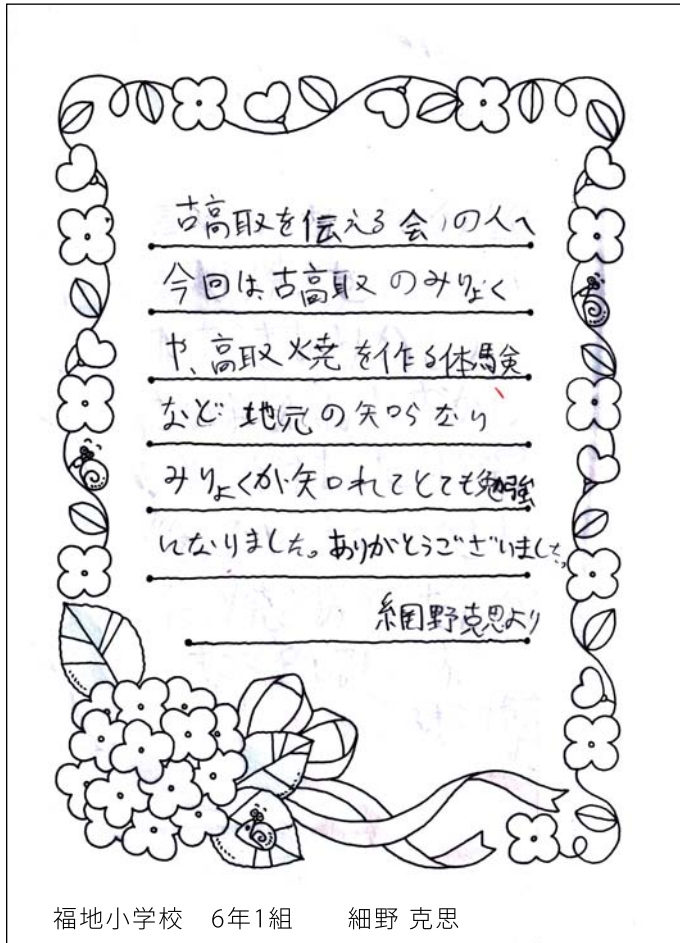 古高取を伝える会の人へ
今回は、古高取のみりょく
や、高取焼を作る体験
など地元の知らない
みりょくが知れてとても勉強
になりました。ありがとうございました。
細野克思より
福地小学校　6年1組　　細野 克思